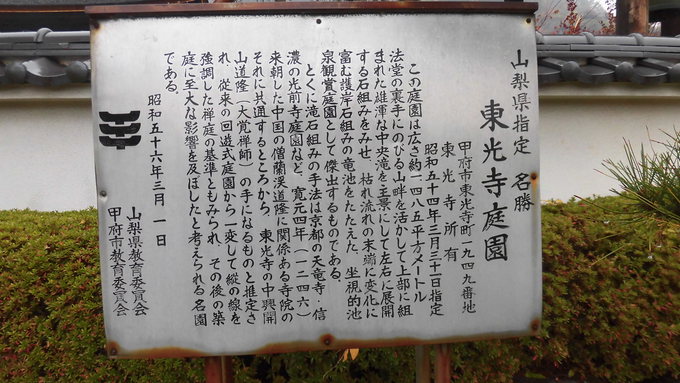 山梨県指定 名勝
東光寺庭園
甲府市東光寺町一九四九番地
東光寺所有
昭和五十四年三月三十一日指定
この庭園は広さ約一四八五平方メートル
法堂の裏手にのびる山畔を活かして上部に組
まれた雄渾な中央滝を主景にして左右に展開
する石組みをみせ、枯れ流れの末端に変化に
富む護岸石組みの竜池をたたえた、坐視的池
泉観賞庭園として傑出するものである。
とくに滝石組みの手法は京都の天竜寺・信
濃の光前寺庭園など、寛元四年（一二四六）
来朝した中国の僧蘭溪道隆に関係ある寺院の
それに共通するところから、東光寺の中興開
山道隆（大覚禅師）の手になるものと推定さ
れ、従来の回遊式庭園から一変して縦の線を
強調した禅庭の基準ともみられ、その後の築
庭に至大な影響を及ぼしたと考えられる名園
である。
昭和五十六年三月一日
山梨県教育委員会
甲府市教育委員会